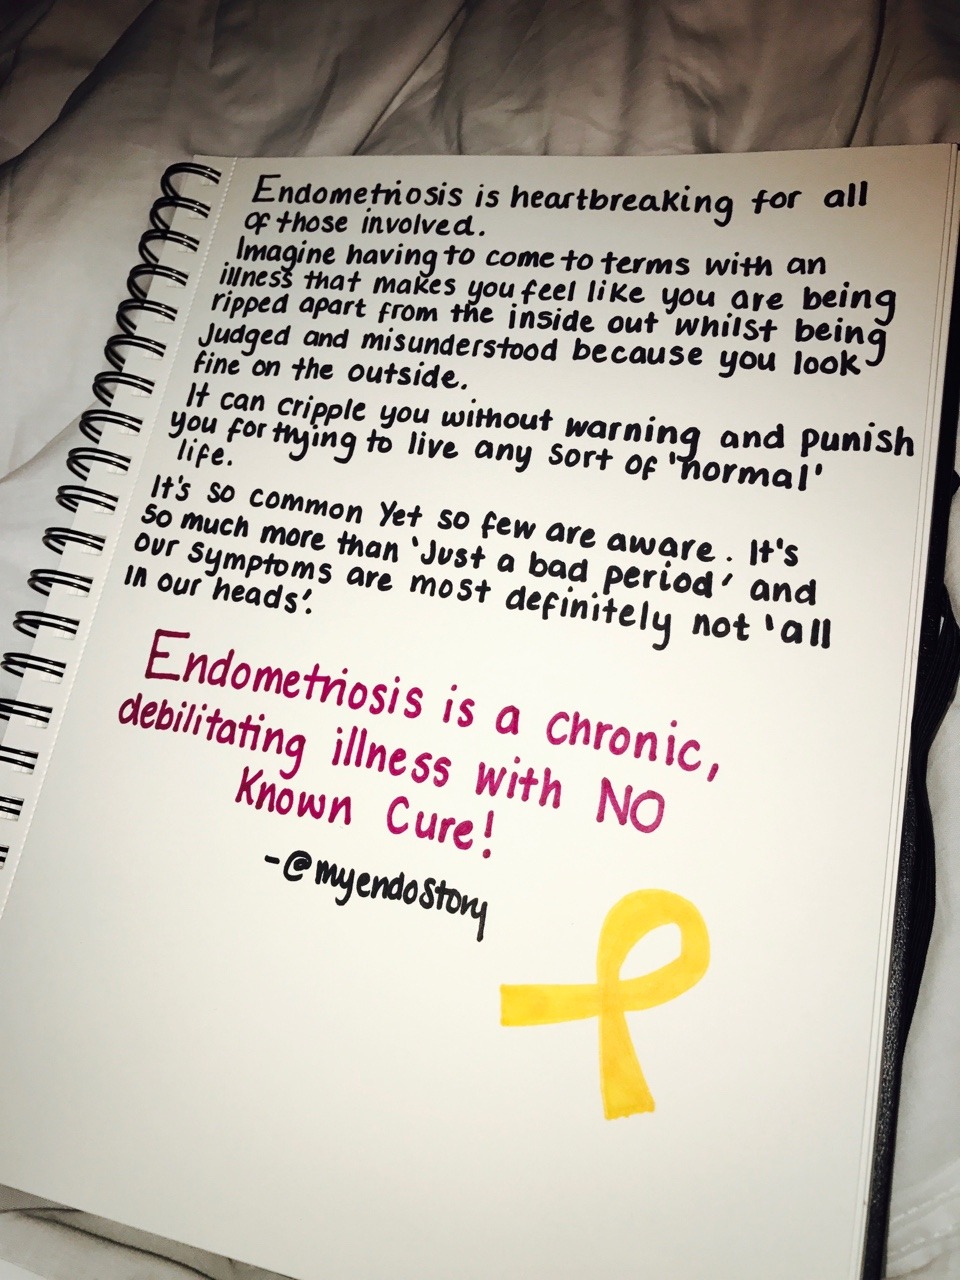 Endometriosis is heartbreaking for all
of those involved.
Imagine having to come to terms with an
illness that makes you feel like you are being
ripped apart from the inside out whilst being
Judged and misunderstood because you look
fine on the outside.
It can cripple you without warning and punish
you for trying to live any sort of 'normal'
life.
It's so common Yet so few are aware. It's
so much more than 'Just a bad period' and
our symptoms are most definitely not 'all
in our heads'.
Endometriosis is a chronic,
debilitating illness with NO
Known Cure!
-@myendostory